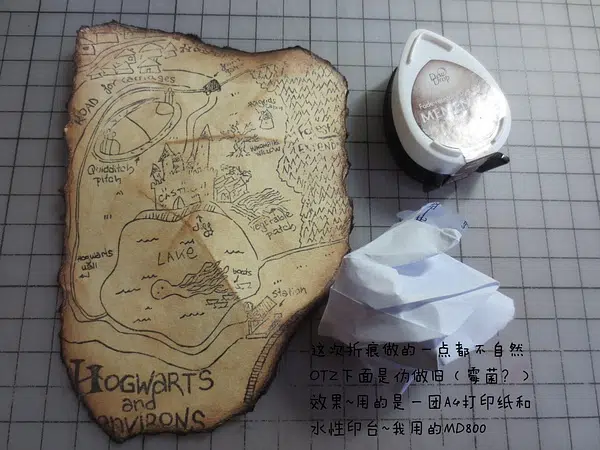 ROAD for carriages
Quidditch
pitch
HAGRIDS
WHOMPING
WILLOW
FOREST
Vegetable
patch
LAKE
HOGWARTS
Wall
boats
Station
HOGWARTS
and
ENVIRONS
Dew
Drop
这次折痕做的一点都不自然
OTZ下面是伪做旧（霉菌？）
效果~用的是一团A4打印纸和
水性印台~我用的MD800